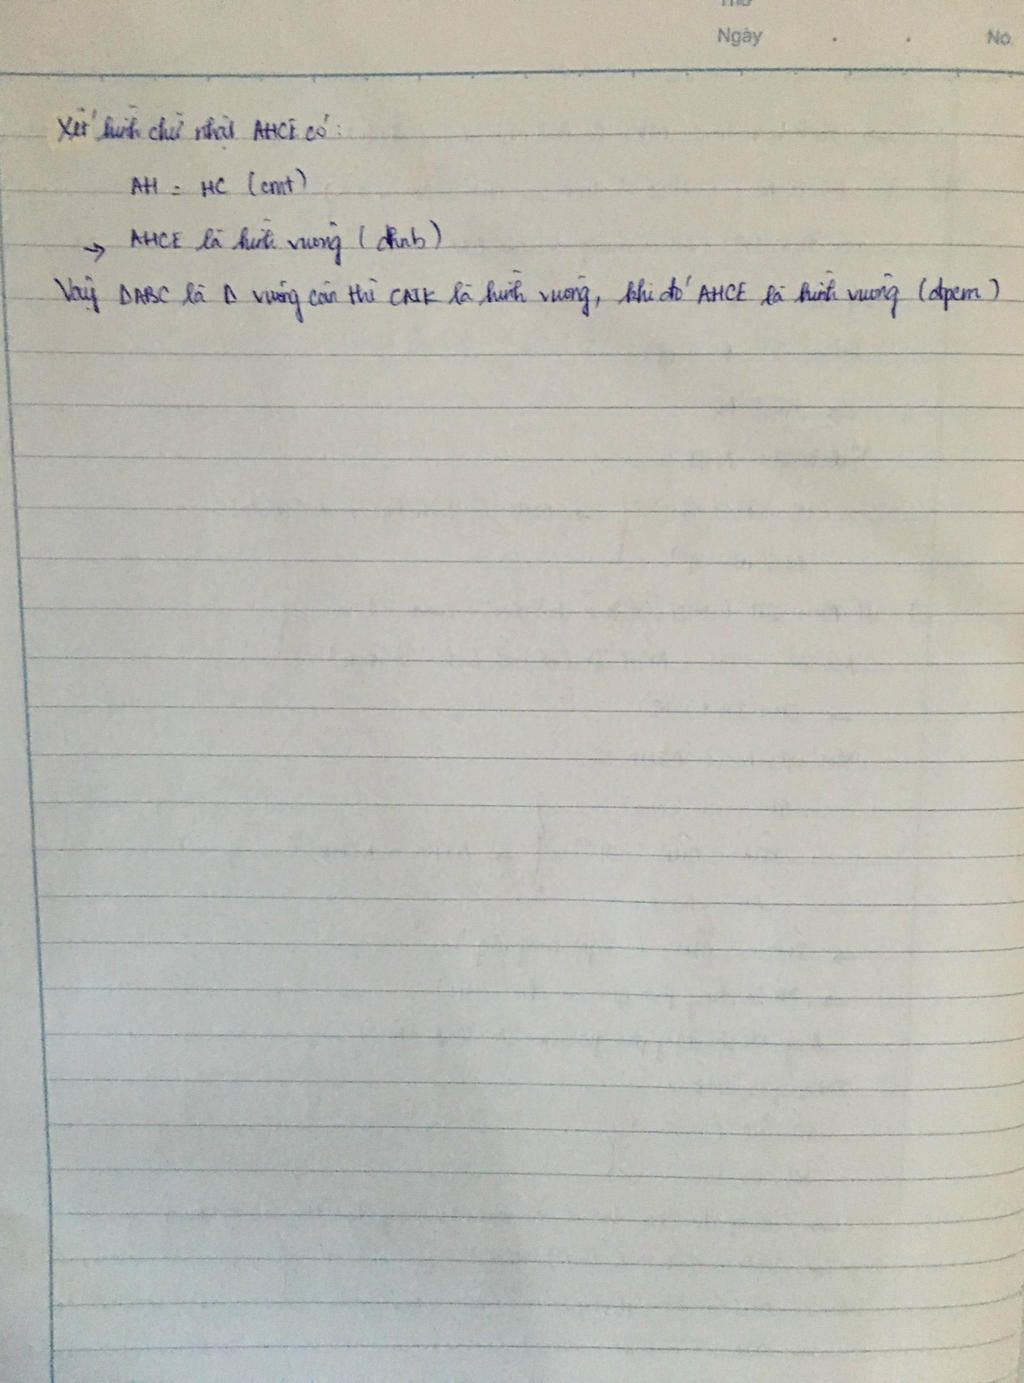 Thứ
Ngày . . No.
Xét hình chữ nhật AHCE có:
AH = HC (cmt)
→ AHCE là hình vuông (dhnb)
Vậy ΔABC là Δ vuông cân thì CAIK là hình vuông, khi đó AHCE là hình vuông (đpcm)